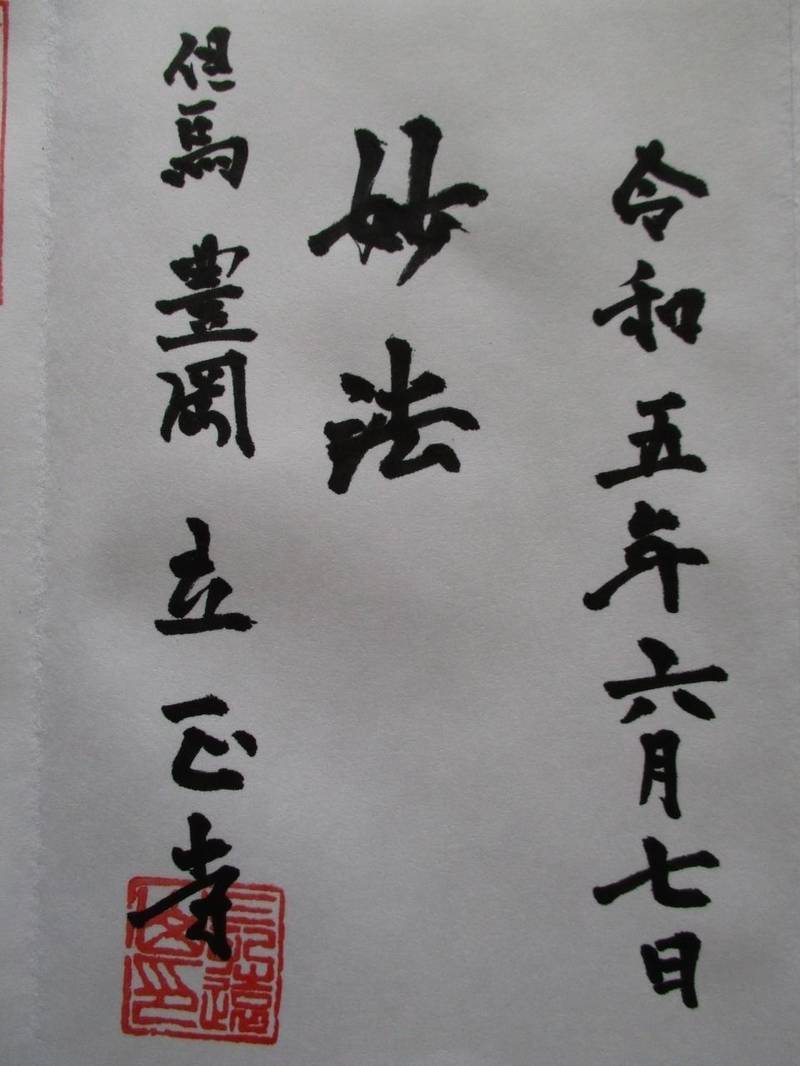 令和五年六月七日
妙法
但馬 豊岡 立正寺